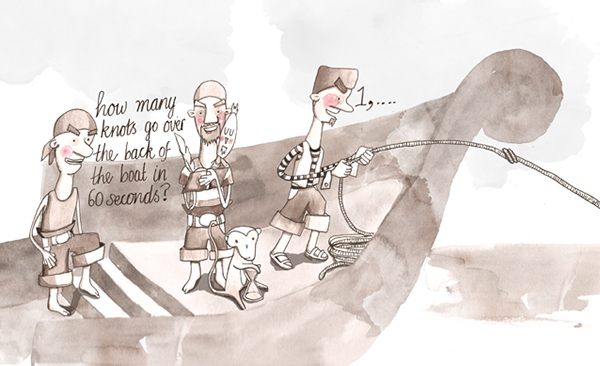 how many
knots go over
the back of
the boat in
60 seconds?
1,....